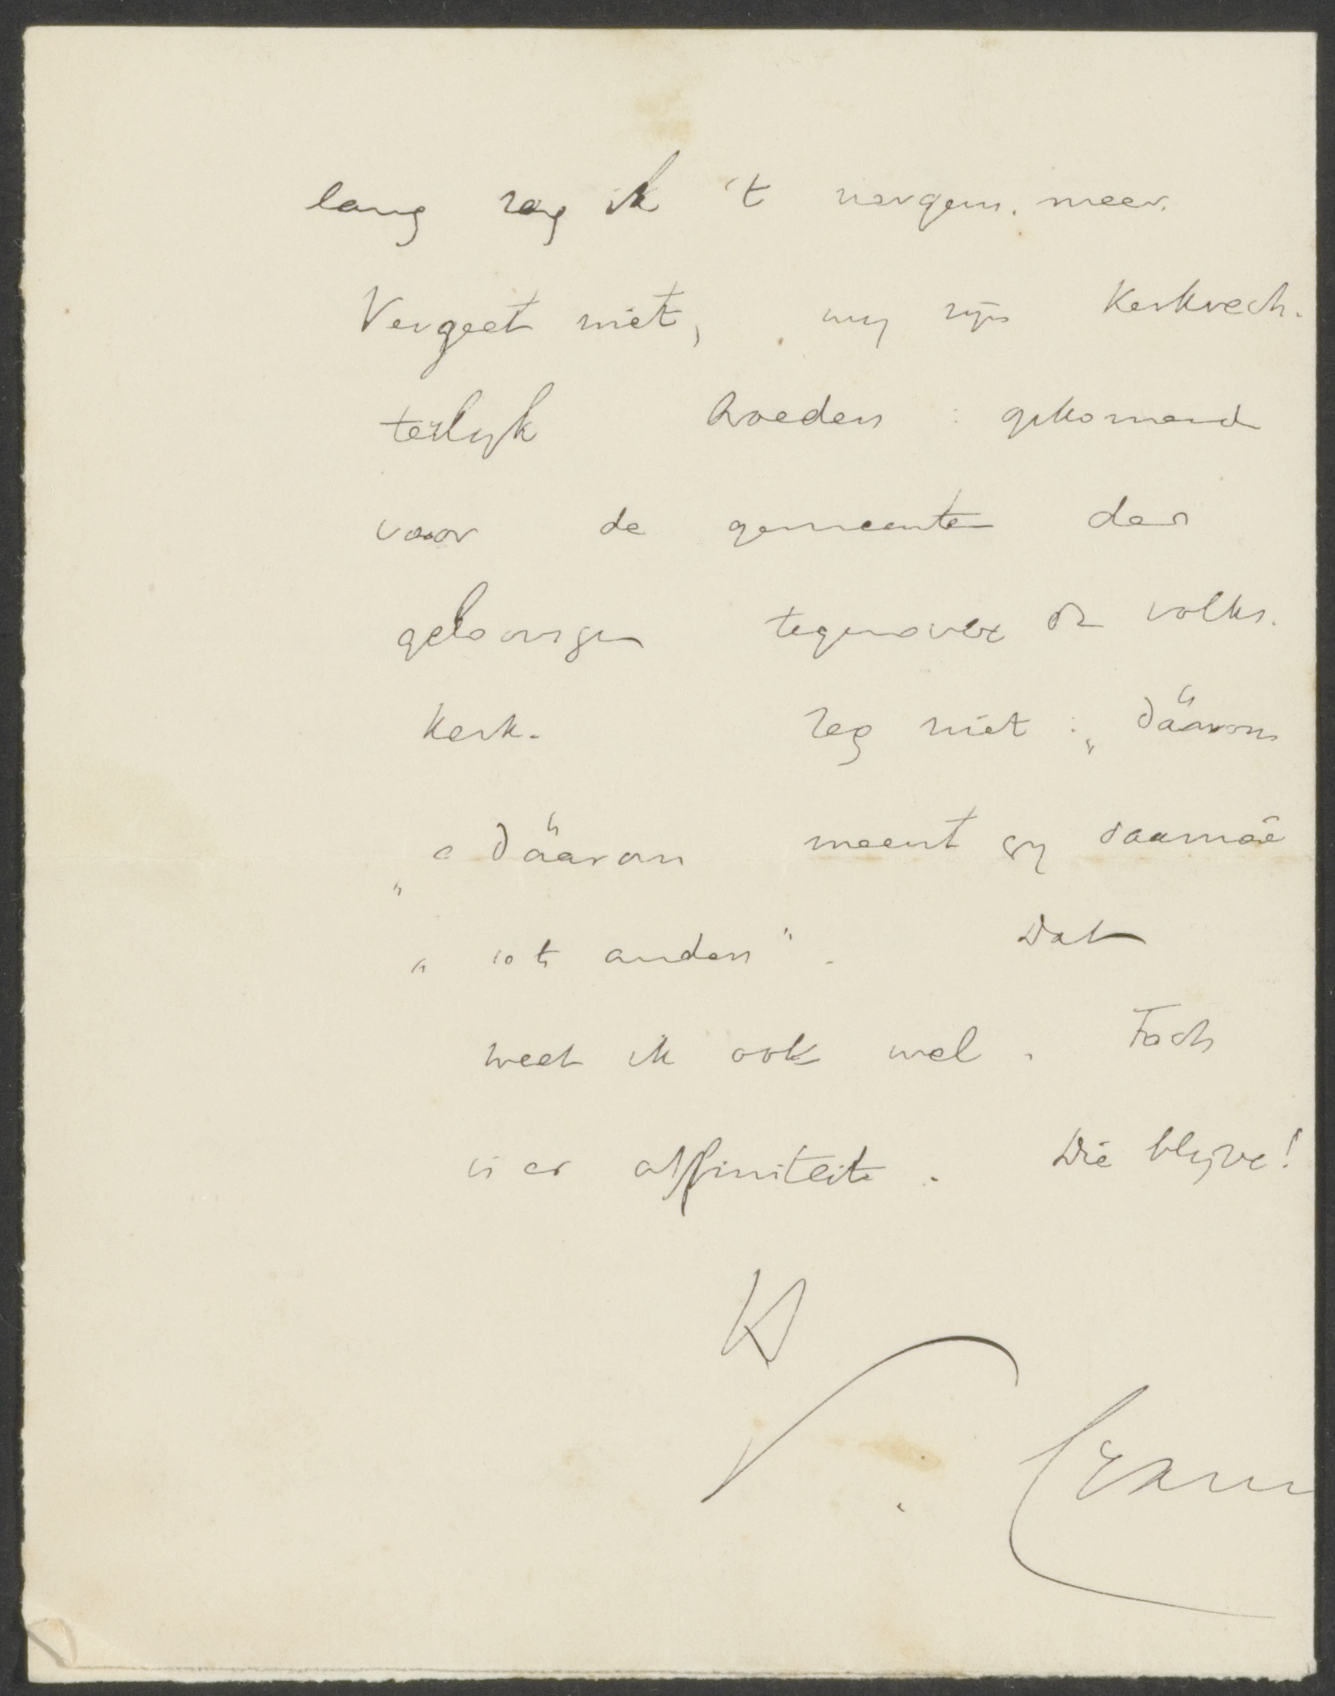 lang zag ik 't nergens meer.
Vergeet niet, wy zijn Kerkrech-
terlyk broeders: opkomend
voor de gemeente der
geloovigen tegenover de volks-
kerk. Zeg niet: „dáárom
„ dáárom meent gy daarmeê
„ iets anders". Dat
weet ik ook wel. Toch
is er affiniteit. Die blyve!